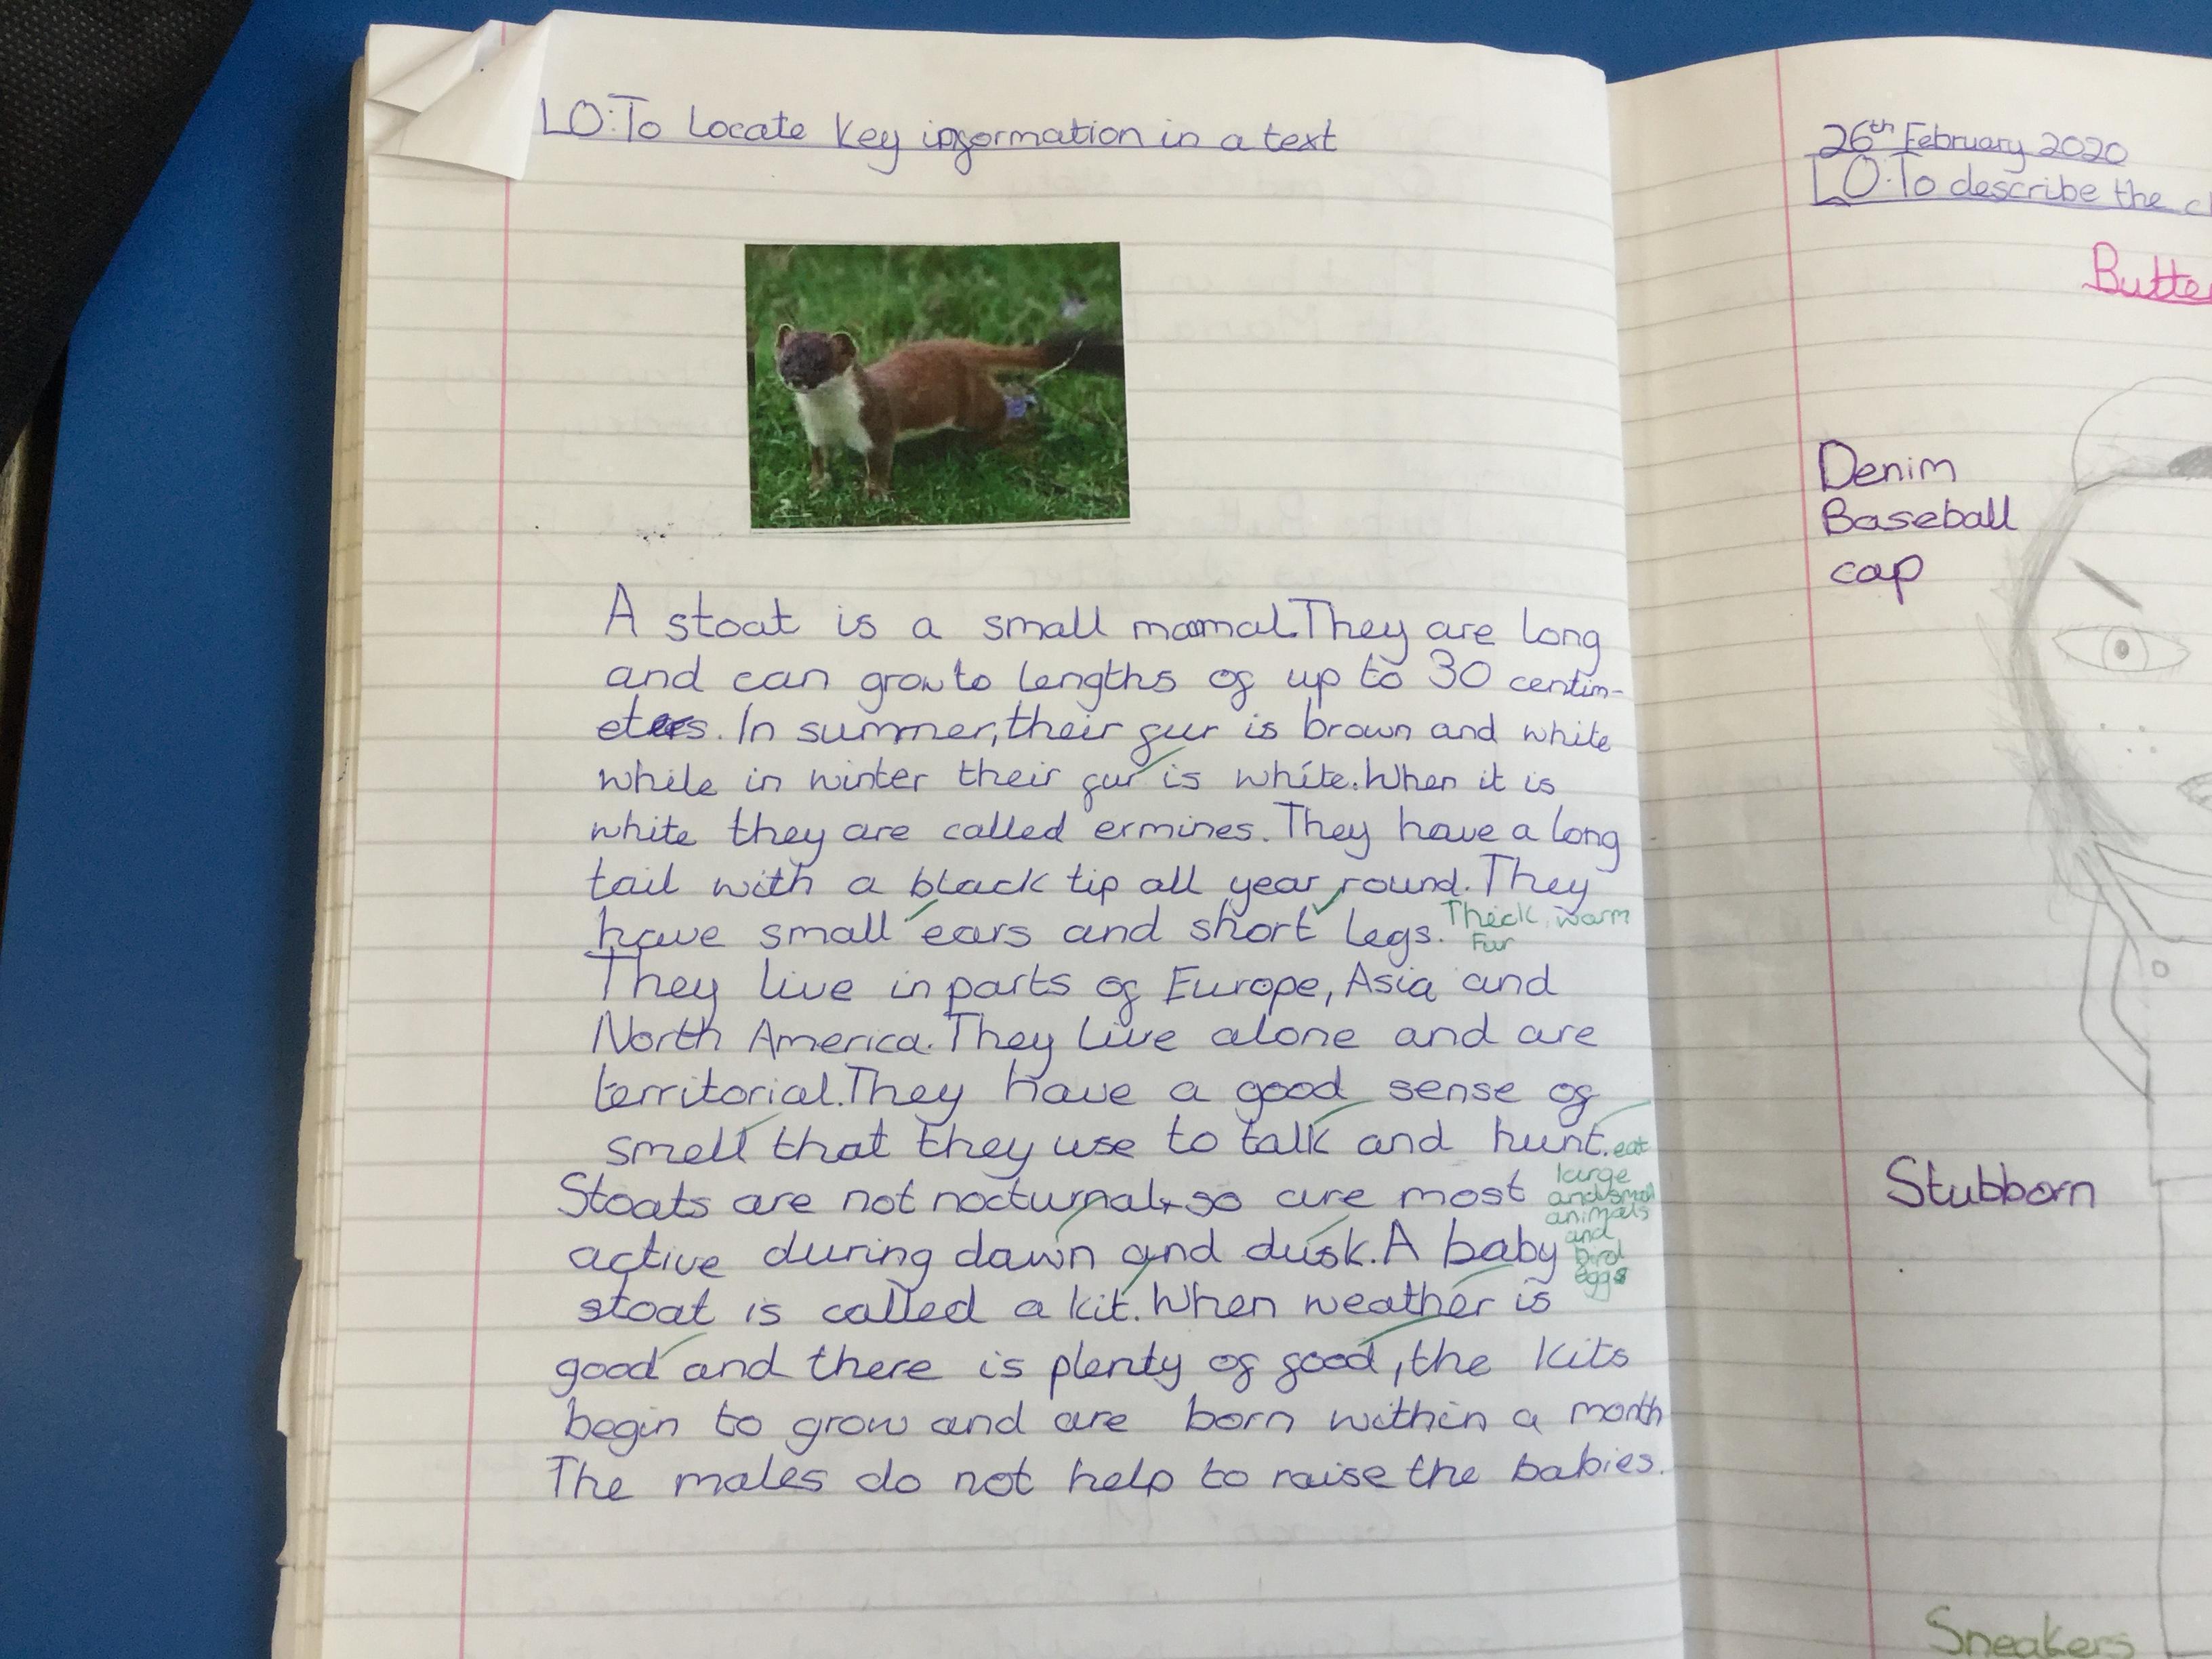 LO: To Locate key information in a text
A stoat is a small mammal. They are long
and can grow to lengths of up to 30 centim-
eters. In summer, their fur is brown and white
while in winter their fur is white. When it is
white they are called ermines. They have a long
tail with a black tip all year round. They
have small ears and short legs. Thick, warm
Fur
They live in parts of Europe, Asia and
North America. They live alone and are
territorial. They have a good sense of
smell that they use to talk and hunt. eat
large
and small
animals
and
bird
eggs
Stoats are not nocturnal, so are most
active during dawn and dusk. A baby
stoat is called a kit. When weather is
good and there is plenty of food, the kits
begin to grow and are born within a month
The males do not help to raise the babies.
26th February 2020
LO: To describe the
Denim
Baseball
cap
Stubborn
Sneakers